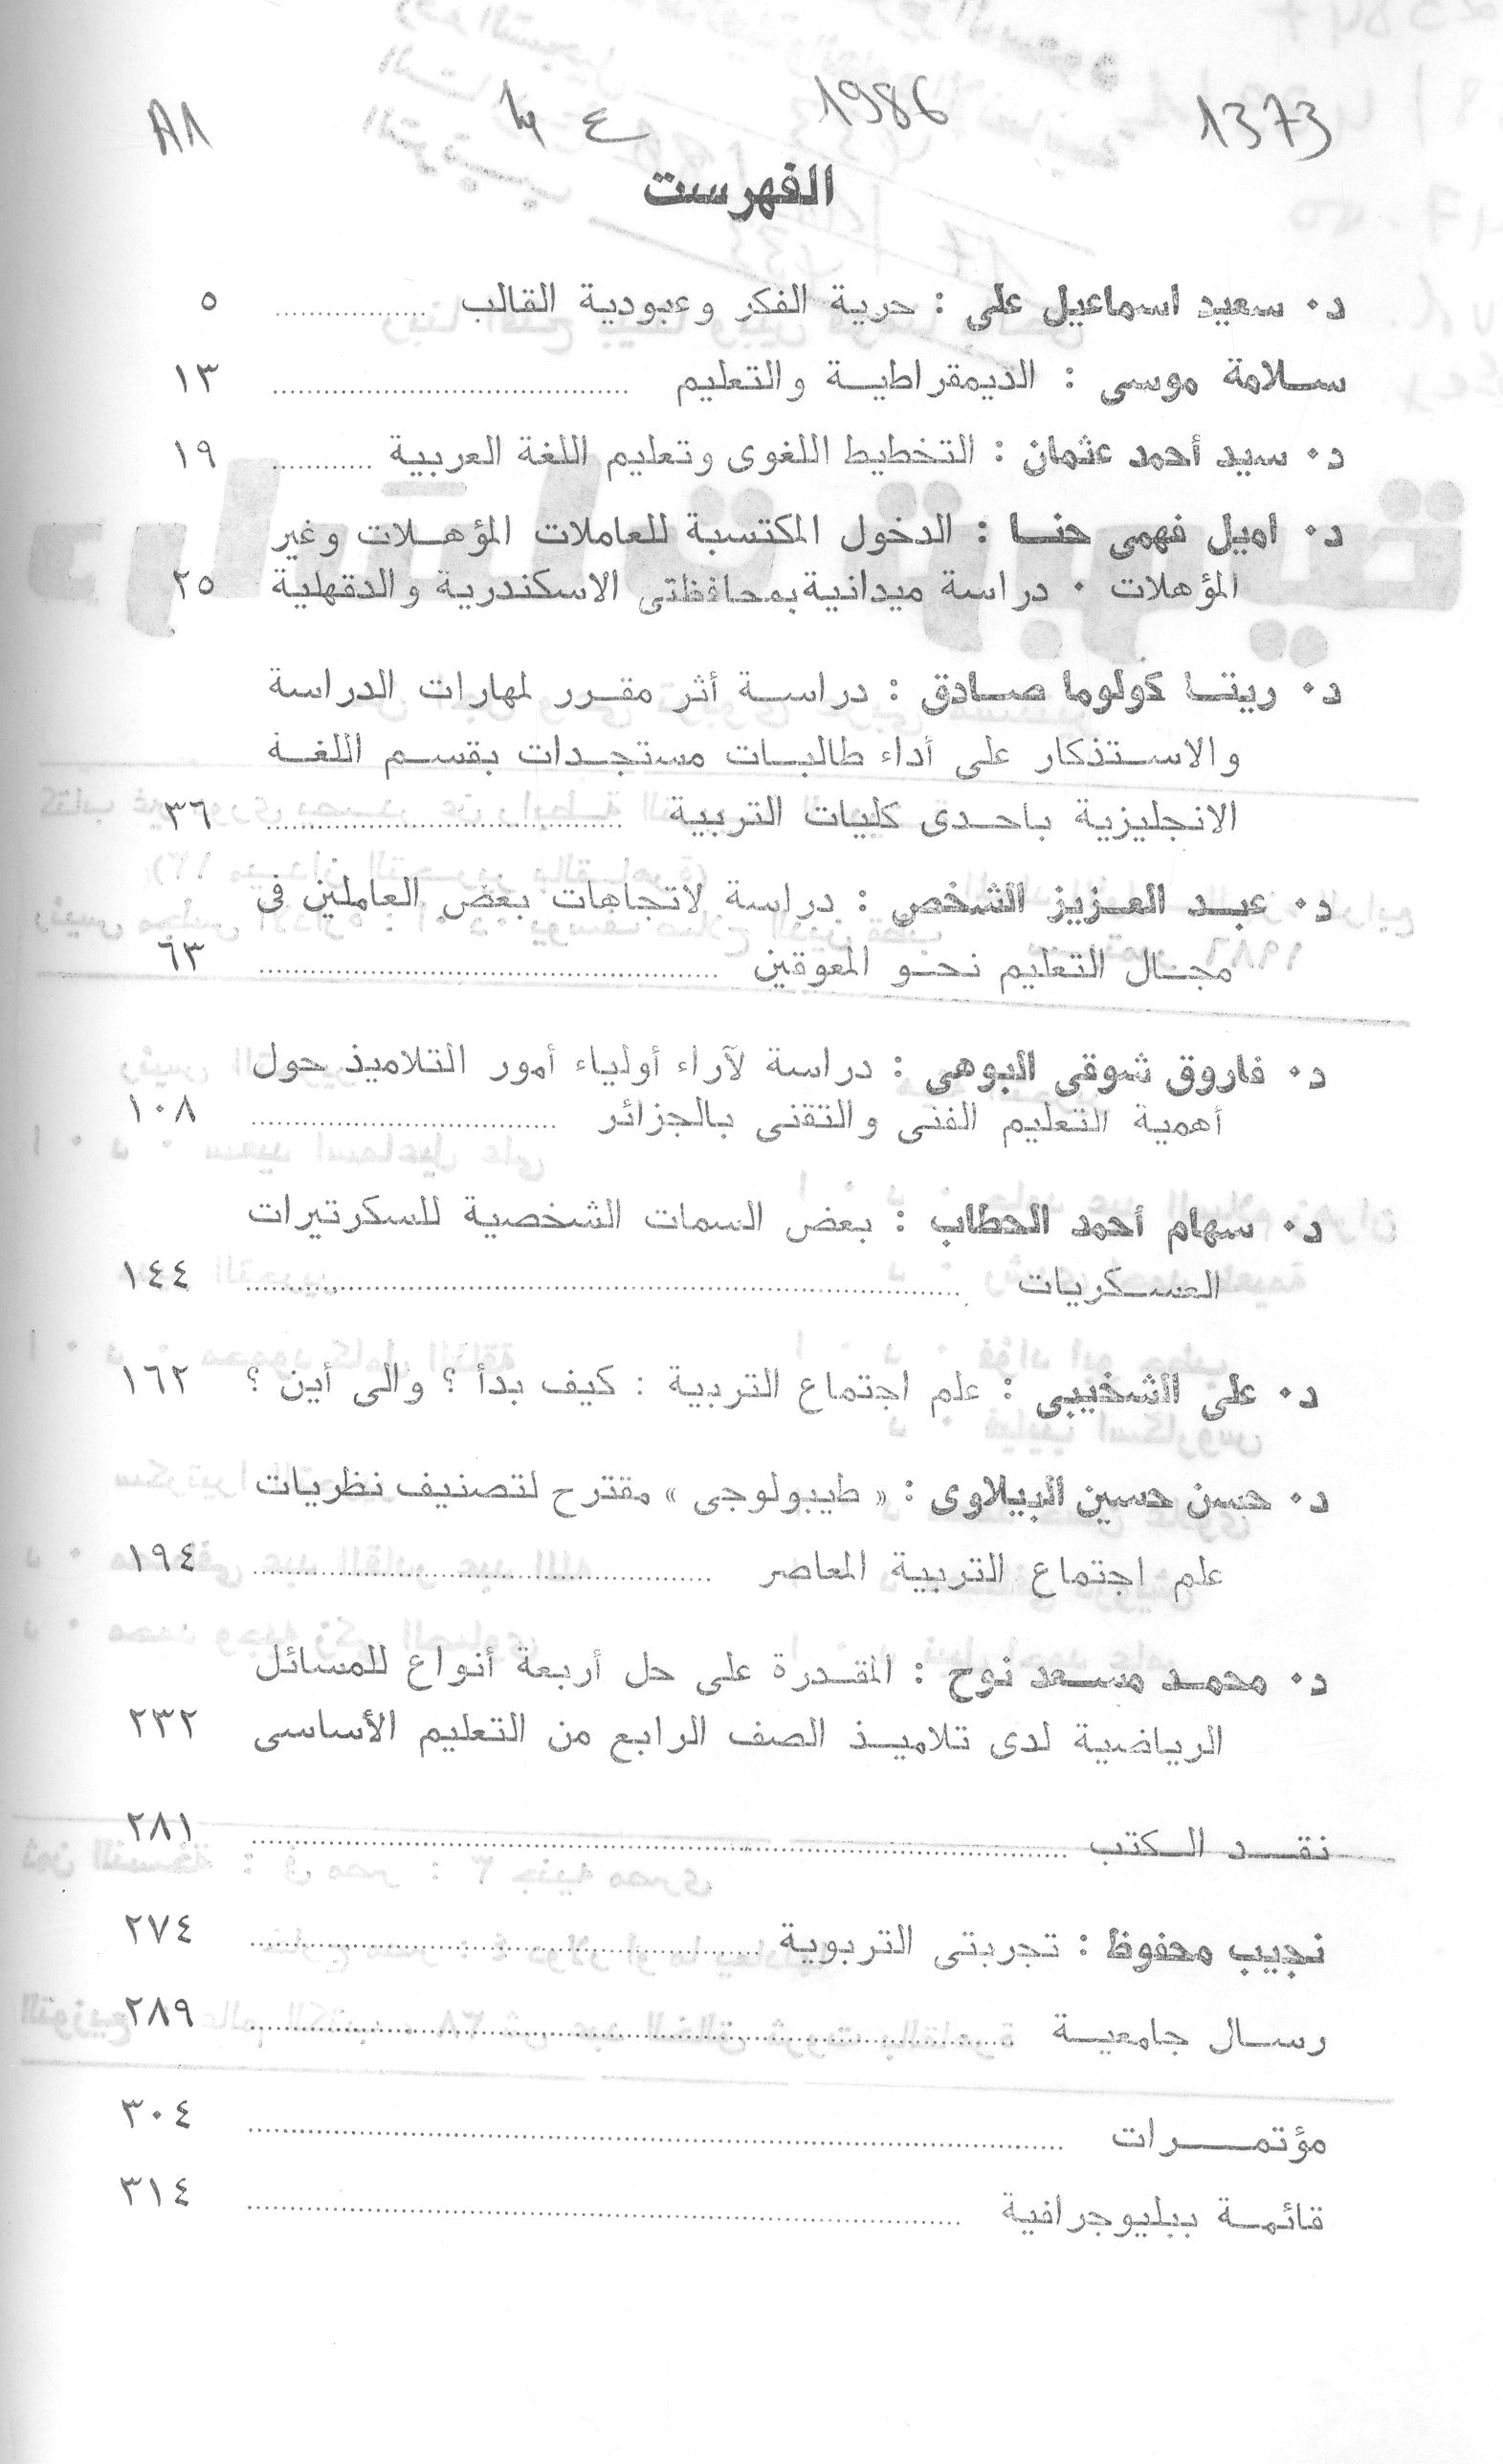 1373 1986 ع
الفهرست
د٠ سعيد اسماعيل على : حرية الفكر وعبودية القالب ٥
سلامة موسى : الديمقراطية والتعليم ١٣
د٠ سيد أحمد عثمان : التخطيط اللغوى وتعليم اللغة العربية ١٩
د٠ اميل فهمى حنا : الدخول المكتسبة للعاملات المؤهلات وغير
المؤهلات ٠ دراسة ميدانية بمحافظتى الاسكندرية والدقهلية ٢٥
د٠ ريتا كولوما صادق : دراسة أثر مقرر لمهارات الدراسة
والاستذكار على أداء طالبات مستجدات بقسم اللغة
الانجليزية باحدى كليات التربية ٣٦
د٠ عبد العزيز الشخص : دراسة لاتجاهات بعض العاملين فى
مجال التعليم نحو المعوقين ٦٣
د٠ فاروق شوقى البوهى : دراسة لآراء أولياء أمور التلاميذ حول
أهمية التعليم الفنى والتقنى بالجزائر ١٠٨
د٠ سهام أحمد الحطاب : بعض السمات الشخصية للسكرتيرات
العسكريات ١٤٤
د٠ على الشخيبى : علم اجتماع التربية : كيف بدأ ؟ والى أين ؟ ١٦٢
د٠ حسن حسين البيلاوى : « طيبولوجى » مقترح لتصنيف نظريات
علم اجتماع التربية المعاصر ١٩٤
د٠ محمد مسعد نوح : المقدرة على حل أربعة أنواع للمسائل
الرياضية لدى تلاميذ الصف الرابع من التعليم الأساسى ٢٣٢
نقد الكتب ٢٨١
نجيب محفوظ : تجربتى التربوية ٢٧٤
رسال جامعية ٢٨٩
مؤتمرات ٣٠٤
قائمة ببليوجرافية ٣١٤